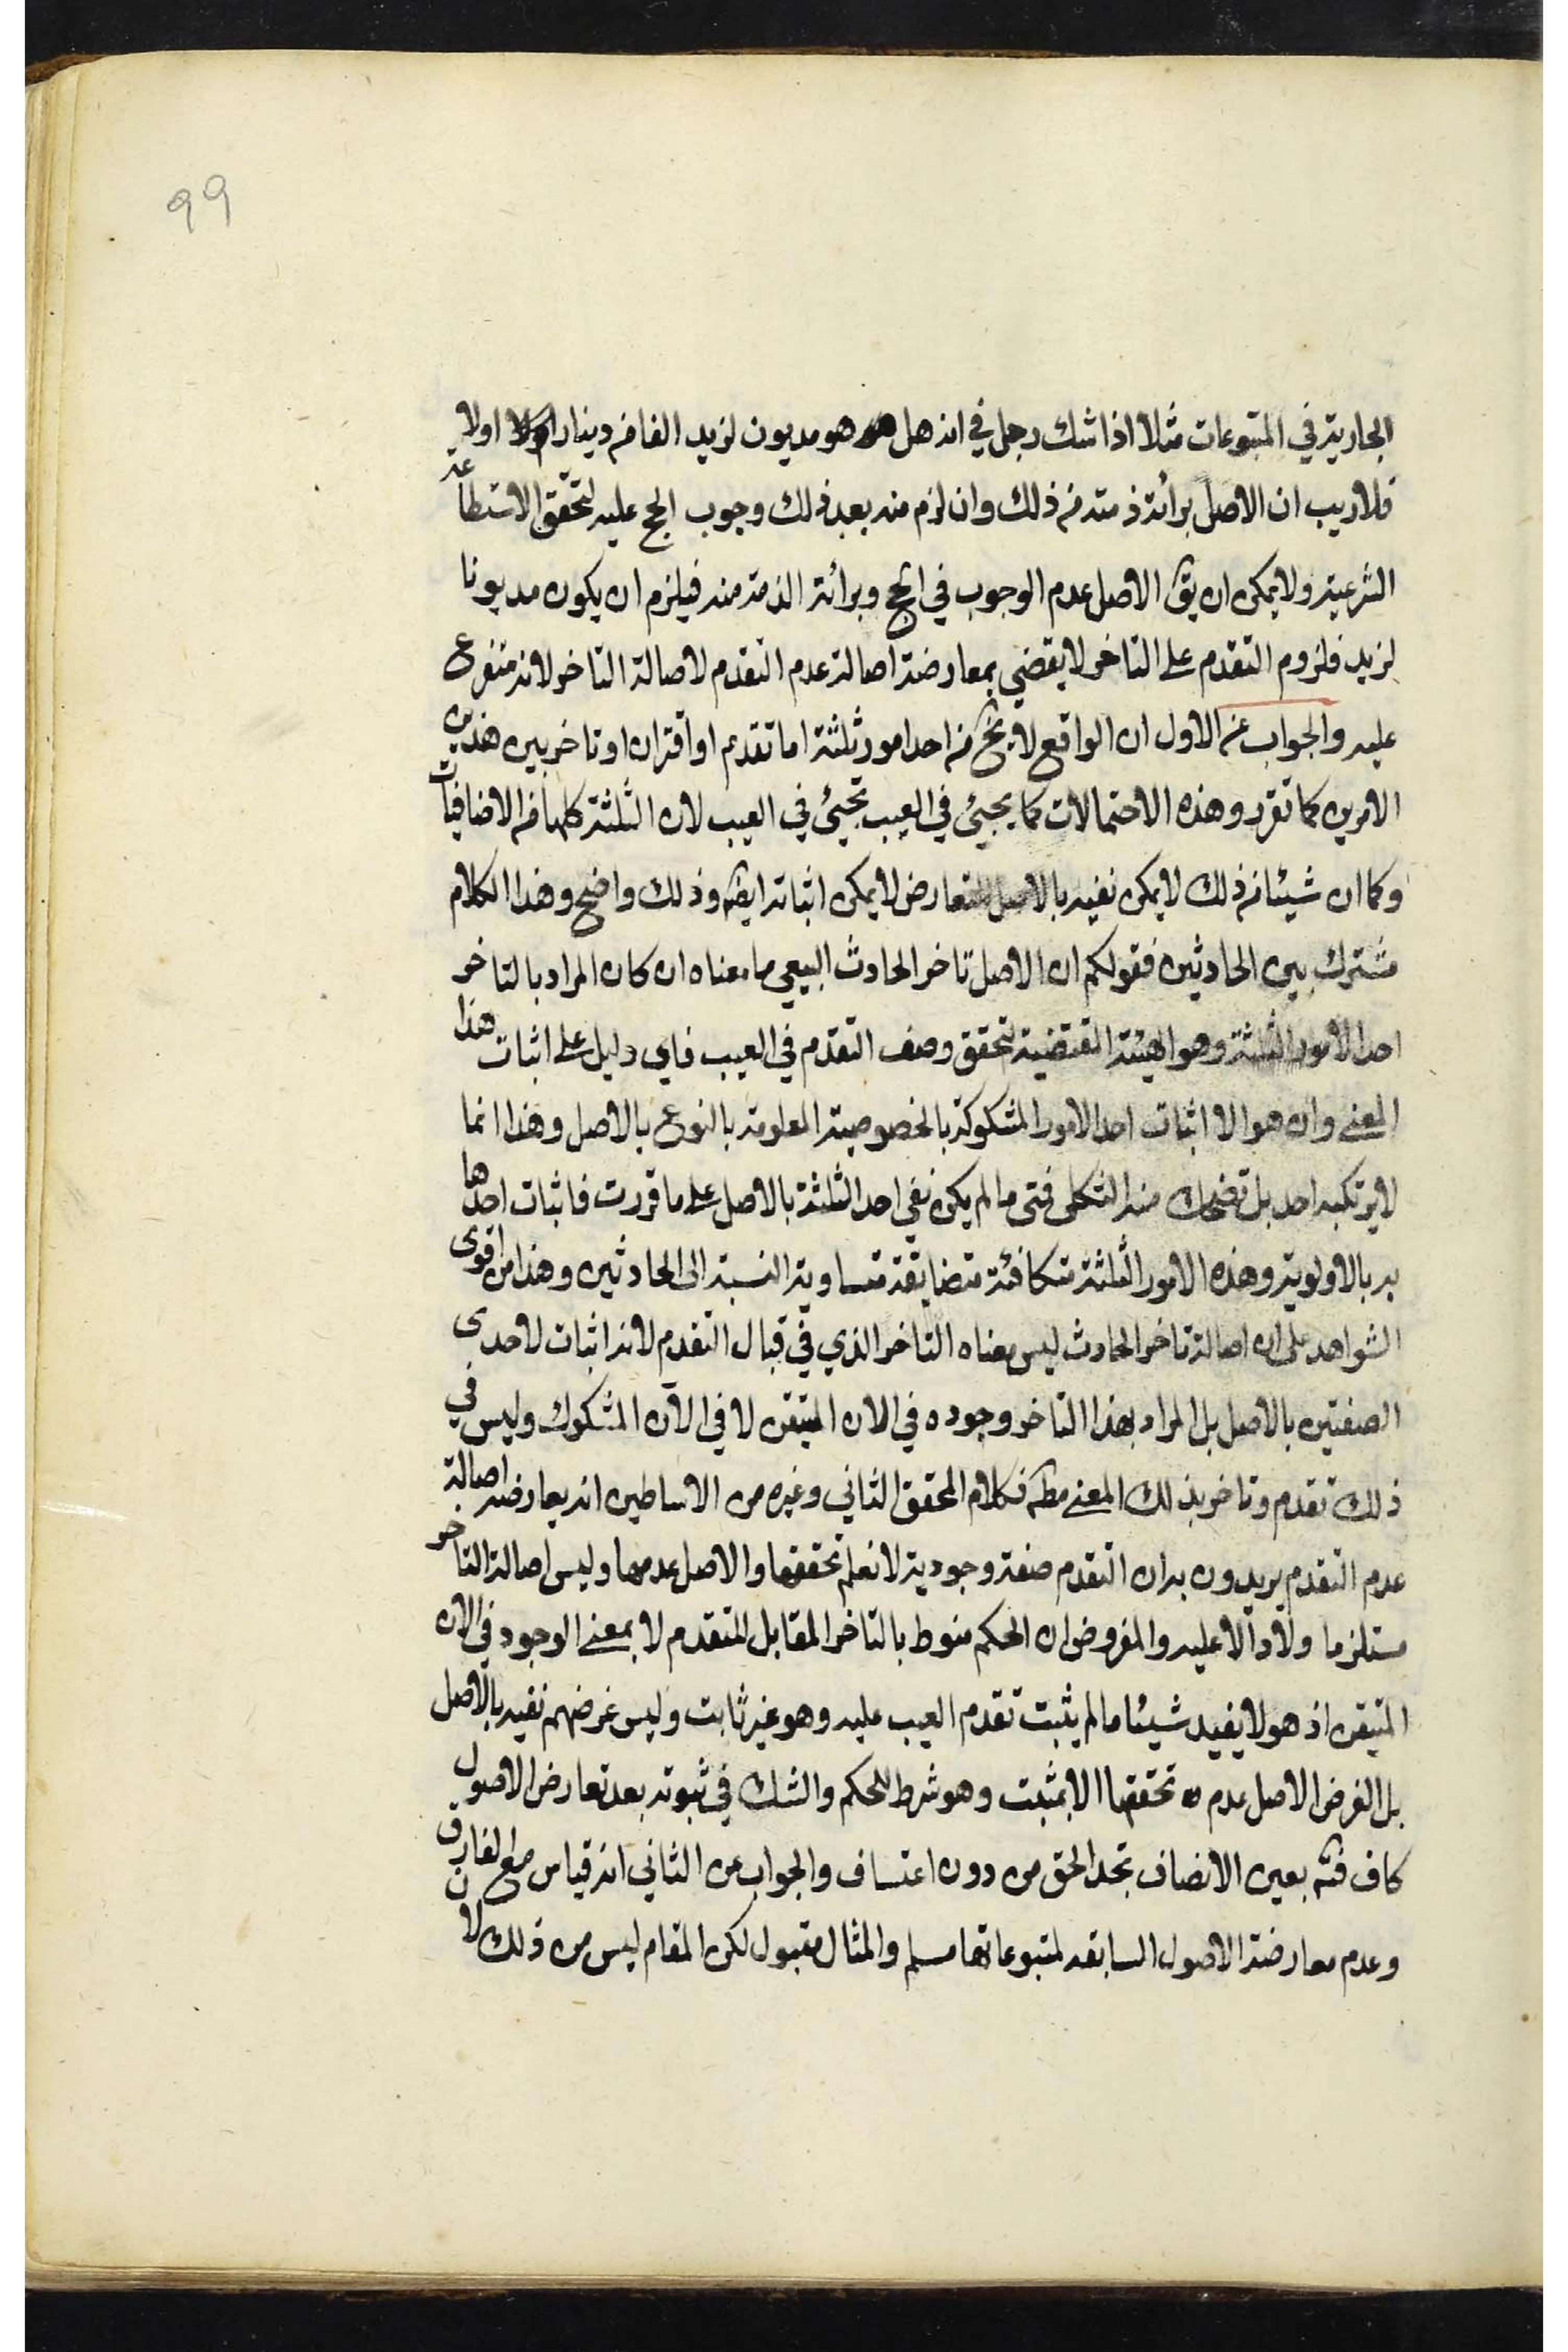 99
الجارية في المتبوعات مثلا اذا شك رجل في انه هل هو مديون لزيد الفا من دينار اولا
فلا ريب ان الاصل برائة ذمته من ذلك وان لزم منه بعد ذلك وجوب الحج عليه لتحقق الاستطاعة
الشرعية ولا يمكن ان يق الاصل عدم الوجوب في الحج وبرائة الذمة منه فيلزم ان يكون مديونا
لزيد فلزوم التقدم على التاخر لا يقضي بمعارضة اصالة عدم التقدم لاصالة التاخر لانه متفرع
عليه والجواب عن الاول ان الواقع لا يخ من احد امور ثلثة اما تقدم او اقتران او تاخر بين هذين
الامرين كما تقرر وهذه الاحتمالات كما يجيئ في العيب تجيئ في العيب لان الثلثة كلها من الاضافيات
وكما ان شيئا من ذلك لا يمكن نفيه بالاصل للتعارض لا يمكن اثباته ايضا وذلك واضح وهذا الكلام
مشترك بين الحادثين فقولكم ان الاصل تاخر الحادث البيعي ما معناه ان كان المراد بالتاخر
احد الامور الثلثة وهو الهيئة المقتضية لتحقق وصف التقدم في العيب فاي دليل على اثبات هذا
المعنى وان هو الا اثبات احد الامور المشكوكة بالخصوصية المعلومة بالنوع بالاصل وهذا انما
لا يرتكبه احد بل تضحك منه الثكلى فمتى ما لم يكن نفي احد الثلثة بالاصل على ما قررت فاثبات احدها
به بالاولوية وهذه الامور الثلثة متكافئة متضايقة متساوية النسبة الى الحادثين وهذا من اقوى
الشواهد على ان اصالة تاخر الحادث ليس معناه التاخر الذي في قبال التقدم لانه اثبات لاحدى
الصفتين بالاصل بل المراد بهذا التاخر وجوده في الان المتيقن لا في الآن المشكوك وليس في
ذلك تقدم وتاخر بذلك المعنى مط فكلام المحقق الثاني وغيره من الاساطين انه يعارضه اصالة
عدم التقدم يريدون به ان التقدم صفة وجودية لا نعلم تحققها والاصل عدمها وليس اصالة التاخر
مستلزما ولا دالا عليه والمفروض ان الحكم منوط بالتاخر المقابل للتقدم لا بمعنى الوجود في الان
المتيقن اذ هو لا يفيد شيئا ما لم يثبت تقدم العيب عليه وهو غير ثابت وليس غرضهم نفيه بالاصل
بل الغرض الاصل عدم تحققها الا بمثبت وهو شرط للحكم والشك في ثبوته بعد تعارض الاصول
كاف فته بعين الانصاف تجد الحق من دون اعتساف والجواب عن الثاني انه قياس مع الفارق
وعدم معارضة الاصول السابقة لمتبوعاتها مسلم والمثال مقبول لكن المقام ليس من ذلك لان